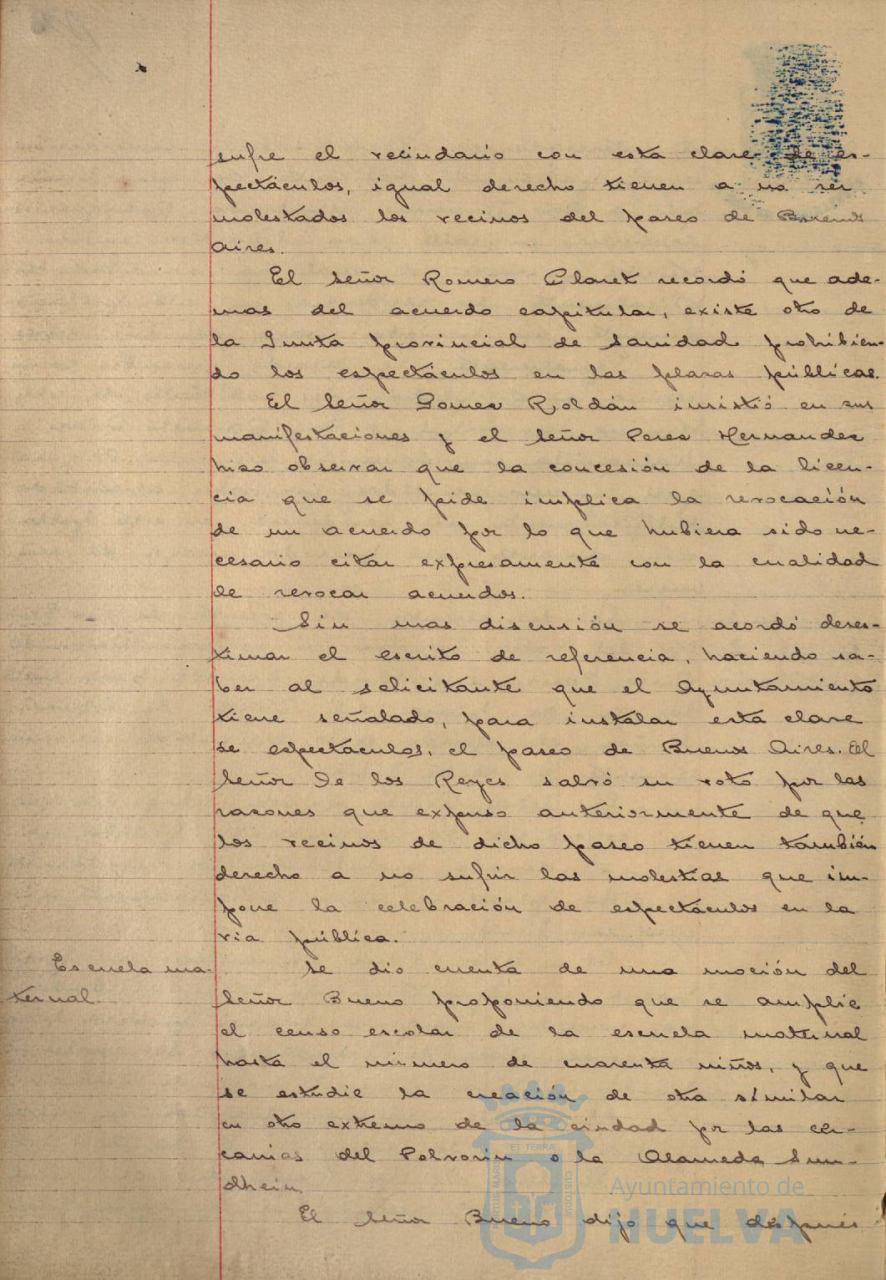 sufre el vecindario con esta clase de es-
pectáculos, igual derecho tienen a no ser
molestados los vecinos del paseo de Buenos
Aires.
El Señor Romero Claret recordó que ade-
mas del acuerdo capitular, existe otro de
la Junta provincial de Sanidad prohibien-
do los espectáculos en las plazas públicas.
El Señor Gomez Roldán insistió en sus
manifestaciones y el Señor Perez Hernandez
hizo observar que la concesión de la licen-
cia que se pide implica la revocación
de un acuerdo por lo que hubiera sido ne-
cesario citar expresamente con la cualidad
de revocar acuerdos.
Sin mas discusión se acordó deses-
timar el escrito de referencia, haciendo sa-
ber al solicitante que el Ayuntamiento
tiene señalado, para instalar esta clase
de espectaculos, el paseo de Buenos Aires. El
Señor De los Reyes salvó su voto por las
razones que expuso anteriormente de que
los vecinos de dicho paseo tienen también
derecho a no sufrir las molestias que im-
pone la celebración de espectáculos en la
via pública.
Escuela ma-
ternal.
Se dio cuenta de una moción del
Señor Bueno proponiendo que se amplie
el censo escolar de la escuela maternal
hasta el número de cuarenta niños, y que
se estudie la creación de otra similar
en otro extremo de la ciudad por las cer-
canias del Polvorin o la Alameda Sun-
dhein.
El Señor Bueno dijo que después
Ayuntamiento de
HUELVA